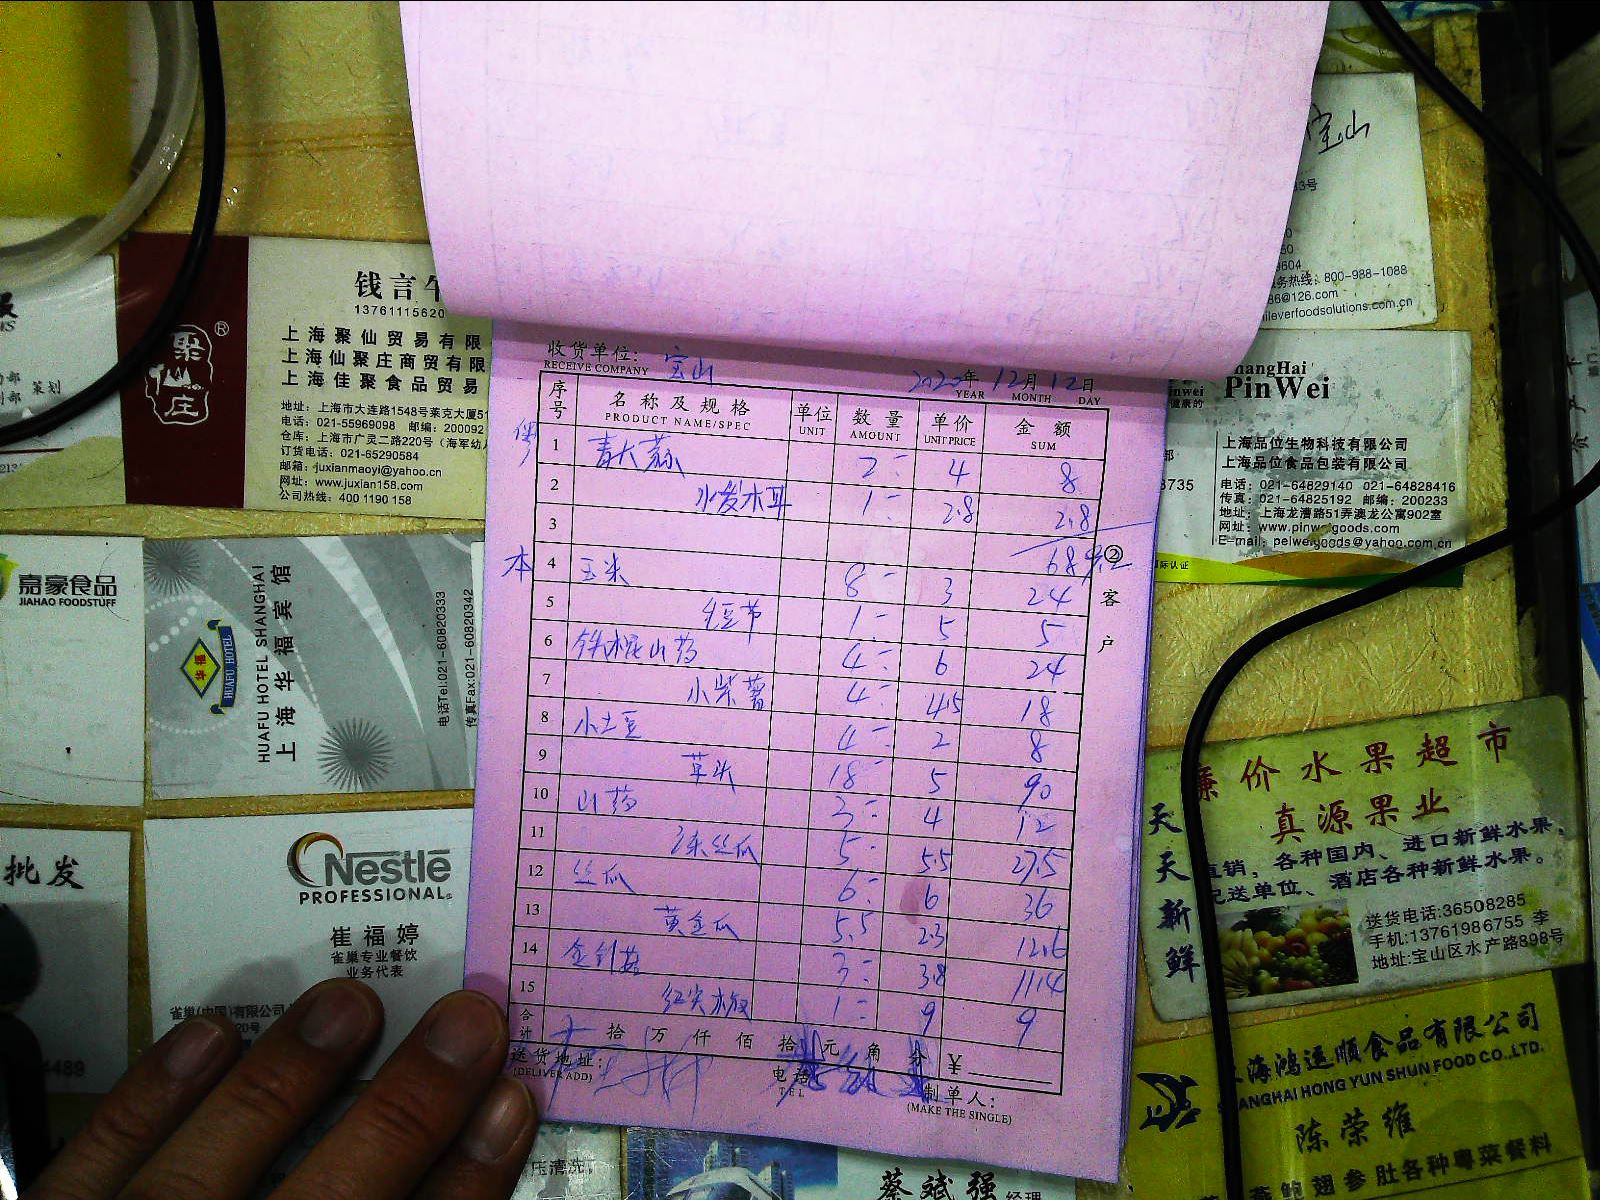 宝山
13号
务热线: 800-988-1088
86@126.com
ileverfoodsolutions.com.cn
钱言午
13761115620
聚仙庄®
上海聚仙贸易有限
上海仙聚庄商贸有限
上海佳聚食品贸易
地址: 上海市大连路1548号莱克大厦51
电话: 021-55969098 邮编: 200092
仓库: 上海市广灵二路220号 (海军幼儿
订货电话: 021-65290584
邮箱: juxianmaoyi@yahoo.cn
网址: www.juxian158.com
公司热线: 400 1190 158
部 策划
收货单位: 宝山
RECEIVE COMPANY
2020年 12月 12日
YEAR MONTH DAY
序号 名称及规格 单位 数量 单价 金额
PRODUCT NAME/SPEC UNIT AMOUNT UNIT PRICE SUM
1 青大蒜 2 4 8
2 小发木耳 1 2.8 2.8
3 689.2
本 4 玉米 8 3 24
5 毛豆节 1 5 5
6 铁棍山药 4 6 24
7 小柴薯 4 4.5 18
8 小土豆 4 2 8
9 草头 18 5 90
10 山药 3 4 12
11 丝瓜 5 5.5 27.5
12 丝瓜 6 6 36
13 黄金瓜 5.5 2.3 12.6
14 金针菇 3 3.8 11.4
15 红尖椒 1 9 9
合计 拾 万 仟 佰 拾 元 角 分 ¥
送货地址:
(DELIVER ADD)
电话
TEL
制单人:
(MAKE THE SINGLE)
② 客户
ShangHai
PinWei
上海品位生物科技有限公司
上海品位食品包装有限公司
电话: 021-64829140 021-64828416
传真: 021-64825192 邮编: 200233
地址: 上海龙漕路51弄澳龙公寓902室
网址: www.pinweigoods.com
E-mail: peiwei.goods@yahoo.com.cn
8735
际认证
嘉豪食品
JIAHAO FOODSTUFF
华福
HUAFU HOTEL
HUAFU HOTEL SHANGHAI
上海华福宾馆
电话Tel:021-60820333
传真Fax:021-60820342
批发
4489
Nestlé
PROFESSIONAL
崔福婷
雀巢专业餐饮
业务代表
雀巢(中国)有限公司
20号
廉价水果超市
真源果业
天天新鲜
直销,各种国内、进口新鲜水果,
配送单位、酒店各种新鲜水果。
送货电话:36508285
手机:13761986755 李
地址:宝山区水产路898号
上海鸿运顺食品有限公司
SHANGHAI HONG YUN SHUN FOOD CO.,LTD.
陈荣维
燕鲍翅参肚各种粤菜餐料
压清洗
蔡斌强 经理